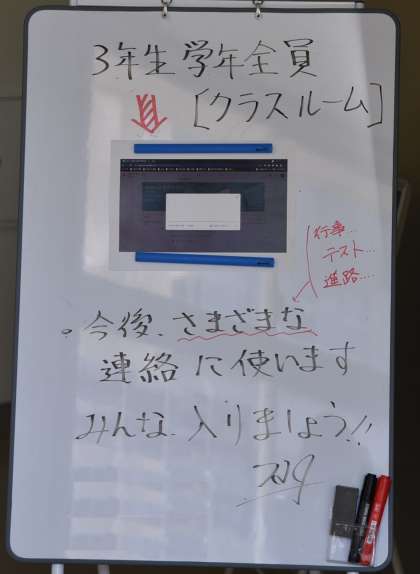 3年生学年全員
[クラスルーム]
行事...
テスト...
進路...
。今後、さまざまな
連絡に使います
みんな、入りましょう!!